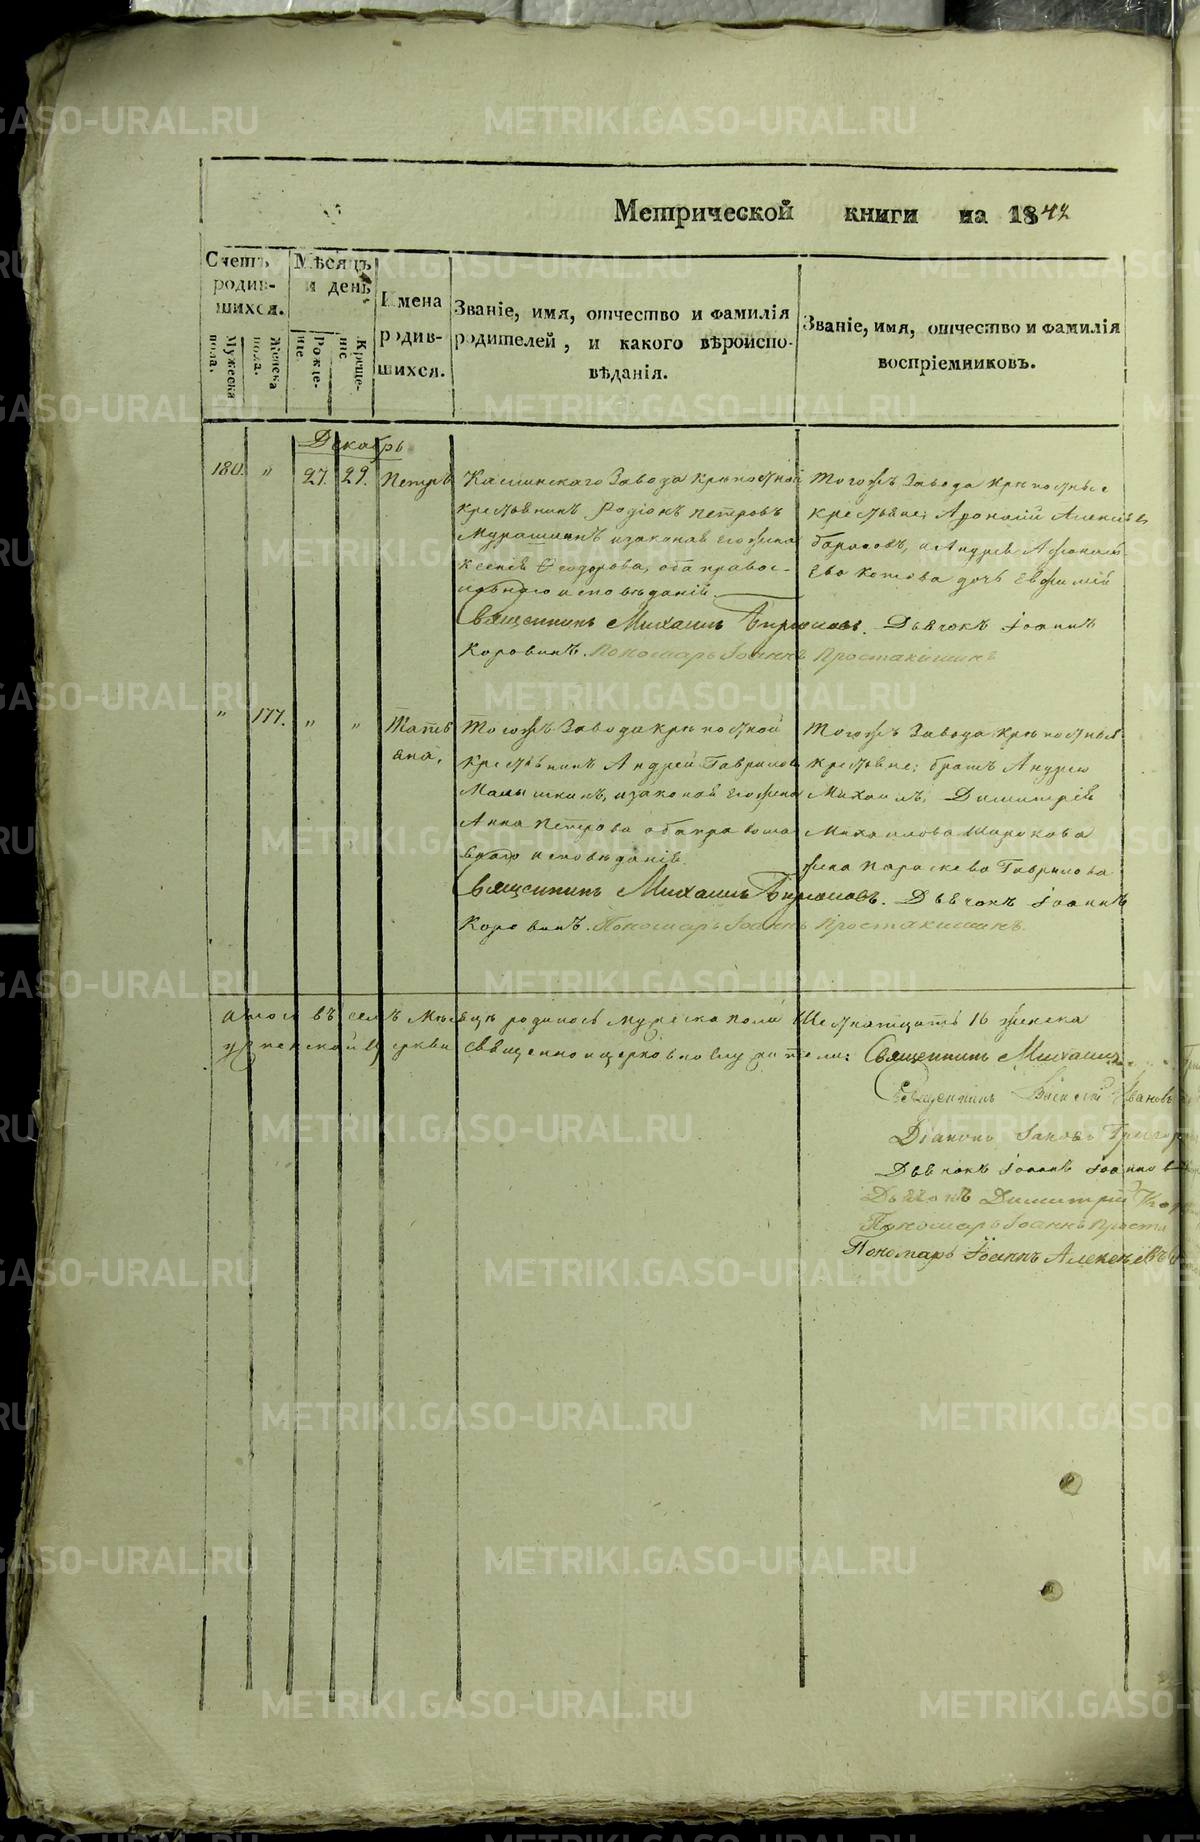 Метрической книги на 1842
Счетъ родив-шихся.
Мужеска пола.
Женска пола.
Мѣсяцъ и день
Рожде-ніе.
Креще-ніе
Имена родив-шихся.
Званіе, имя, отчество и фамилія родителей, и какого вѣроиспо-вѣданія.
Званіе, имя, отчество и фамилія воспріемниковъ.
Декабрь
180. " 27. 29. Петръ
Каслинскаго Завода крѣпостной
крестьянинъ Родіонъ Петровъ
Мурашкинъ изаконая его жена
Ксенія Ѳеодорова, оба правос-
Тогожъ Завода крѣпостные
крестьяне;
Котова дочь Евфимія
Священникъ Михаилъ Бирюковъ. Дьячокъ Іоаннъ
Коровинъ. Пономарь Іоаннъ Простакишинъ
" 177. " " Татья
на,
Тогожъ Завода крѣпостной
крестьянинъ Андрей Гавриловъ
Малышкинъ, изаконая его жена
Анна Петрова оба правосла
внаго исповѣданія.
Тогожъ Завода крѣпостные
крестьяне; братъ Андрея
Михаилъ, Димитрія
Михаилова Широкова
жена Параскева Гаврилова
Священникъ Михаилъ Бирюковъ. Дьячокъ Іоаннъ
Коровинъ. Пономарь Іоаннъ Простакишинъ.
Итого въ семъ Мѣсяцѣ родилось мужеска пола Шестнатцать 16 женска
Церкви священно и церковнослужители: Священникъ Михаилъ
Священникъ Ивановъ
Діаконъ Іаковъ
Дьячокъ Іоаннъ
Дьячокъ Димитрій
Пономарь Іоаннъ Проста
Пономарь Іоаннъ Алексѣевъ
METRIKI.GASO-URAL.RU